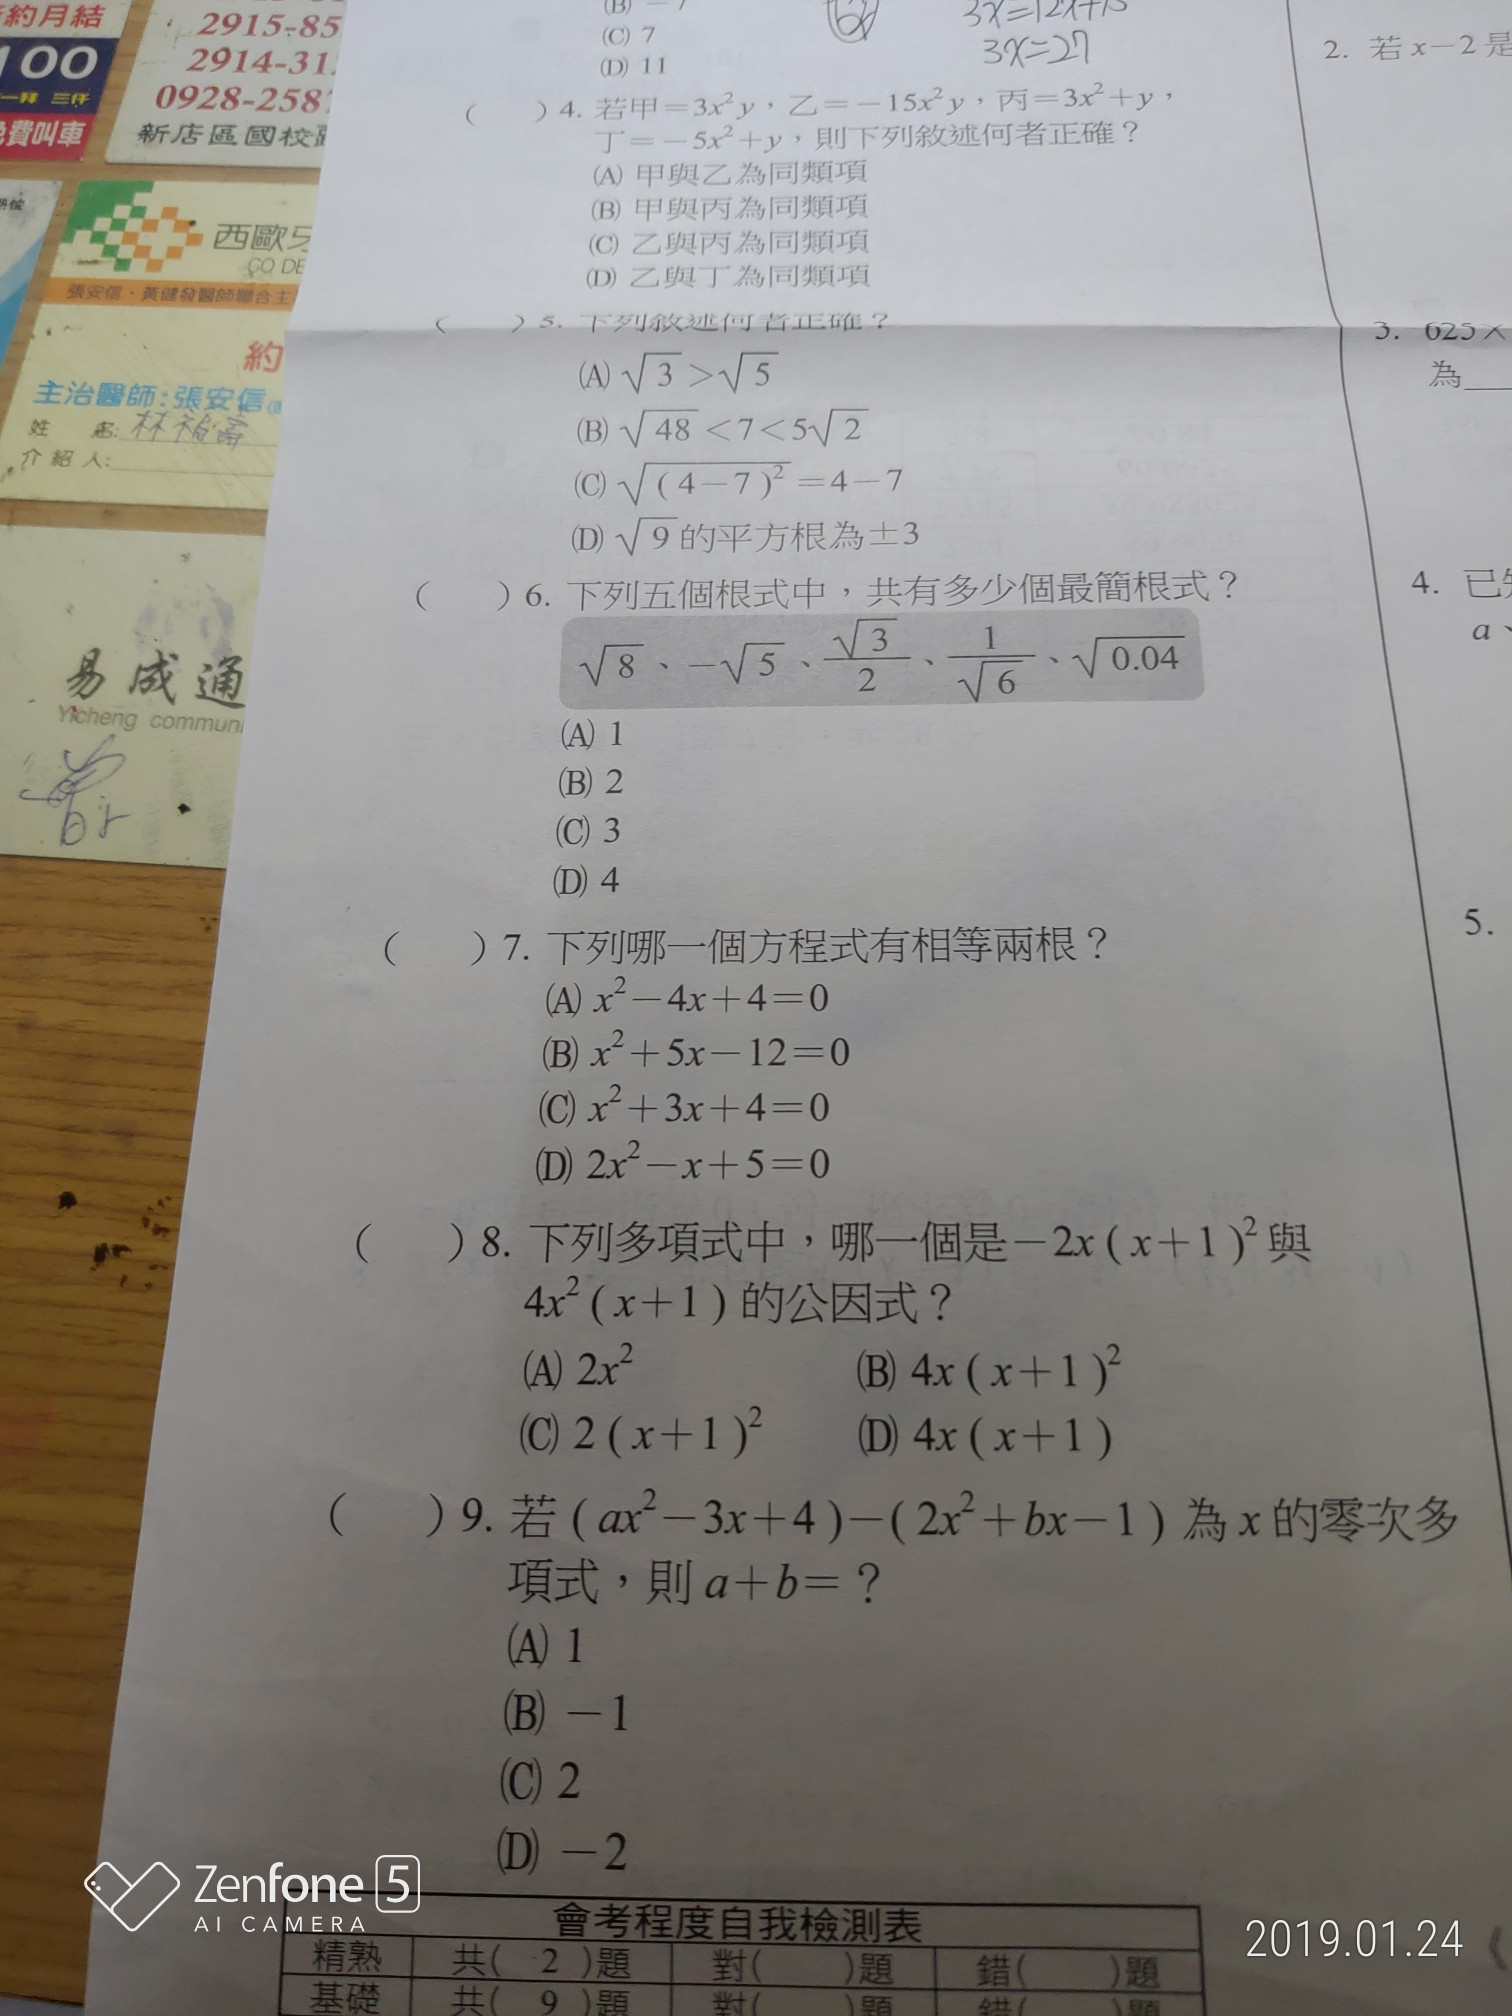 約月結
100
一拜 三仟
免費叫車
2915-85
2914-31
0928-258
新店區國校路
西歐牙
CO DE
張安信・黃健發醫師聯合主
約
主治醫師:張安信
姓 名: 林福壽
介紹人:
易成通
Yicheng commun
(C) 7
(D) 11
3x=12x+15
3x=27
( ) 4. 若甲=3x²y,乙=-15x²y,丙=3x²+y,
丁=-5x²+y,則下列敘述何者正確?
(A) 甲與乙為同類項
(B) 甲與丙為同類項
(C) 乙與丙為同類項
(D) 乙與丁為同類項
( ) 5. 下列敘述何者正確?
(A) √3 >√5
(B) √48 <7<5√2
(C) √(4-7)² =4-7
(D) √9 的平方根為±3
( ) 6. 下列五個根式中,共有多少個最簡根式?
√8、-√5、√3/2、1/√6、√0.04
(A) 1
(B) 2
(C) 3
(D) 4
( ) 7. 下列哪一個方程式有相等兩根?
(A) x²-4x+4=0
(B) x²+5x-12=0
(C) x²+3x+4=0
(D) 2x²-x+5=0
( ) 8. 下列多項式中,哪一個是-2x(x+1)²與
4x²(x+1)的公因式?
(A) 2x² (B) 4x(x+1)²
(C) 2(x+1)² (D) 4x(x+1)
( ) 9. 若(ax²-3x+4)-(2x²+bx-1)為x的零次多
項式,則a+b=?
(A) 1
(B) -1
(C) 2
(D) -2
會考程度自我檢測表
精熟 共( 2 )題 對( )題 錯( )題
基礎 共( 9 )題 對( )題 錯( )題
2. 若x-2是
3. 625×
為
4. 已知
a、
5.
Zenfone 5
AI CAMERA
2019.01.24